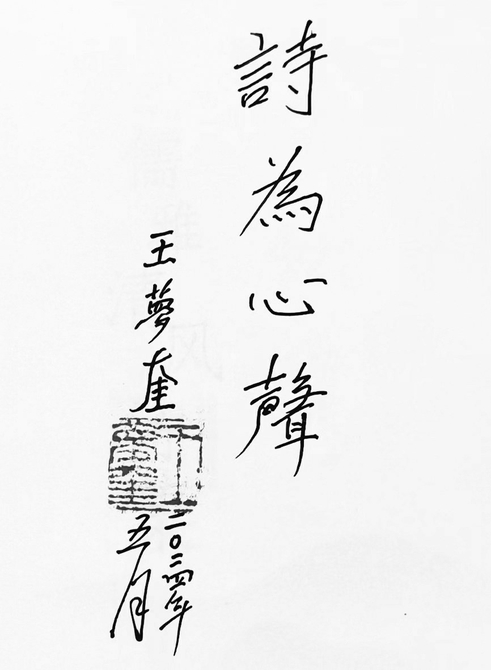 詩為心聲
王夢奎
二〇二四年
五月